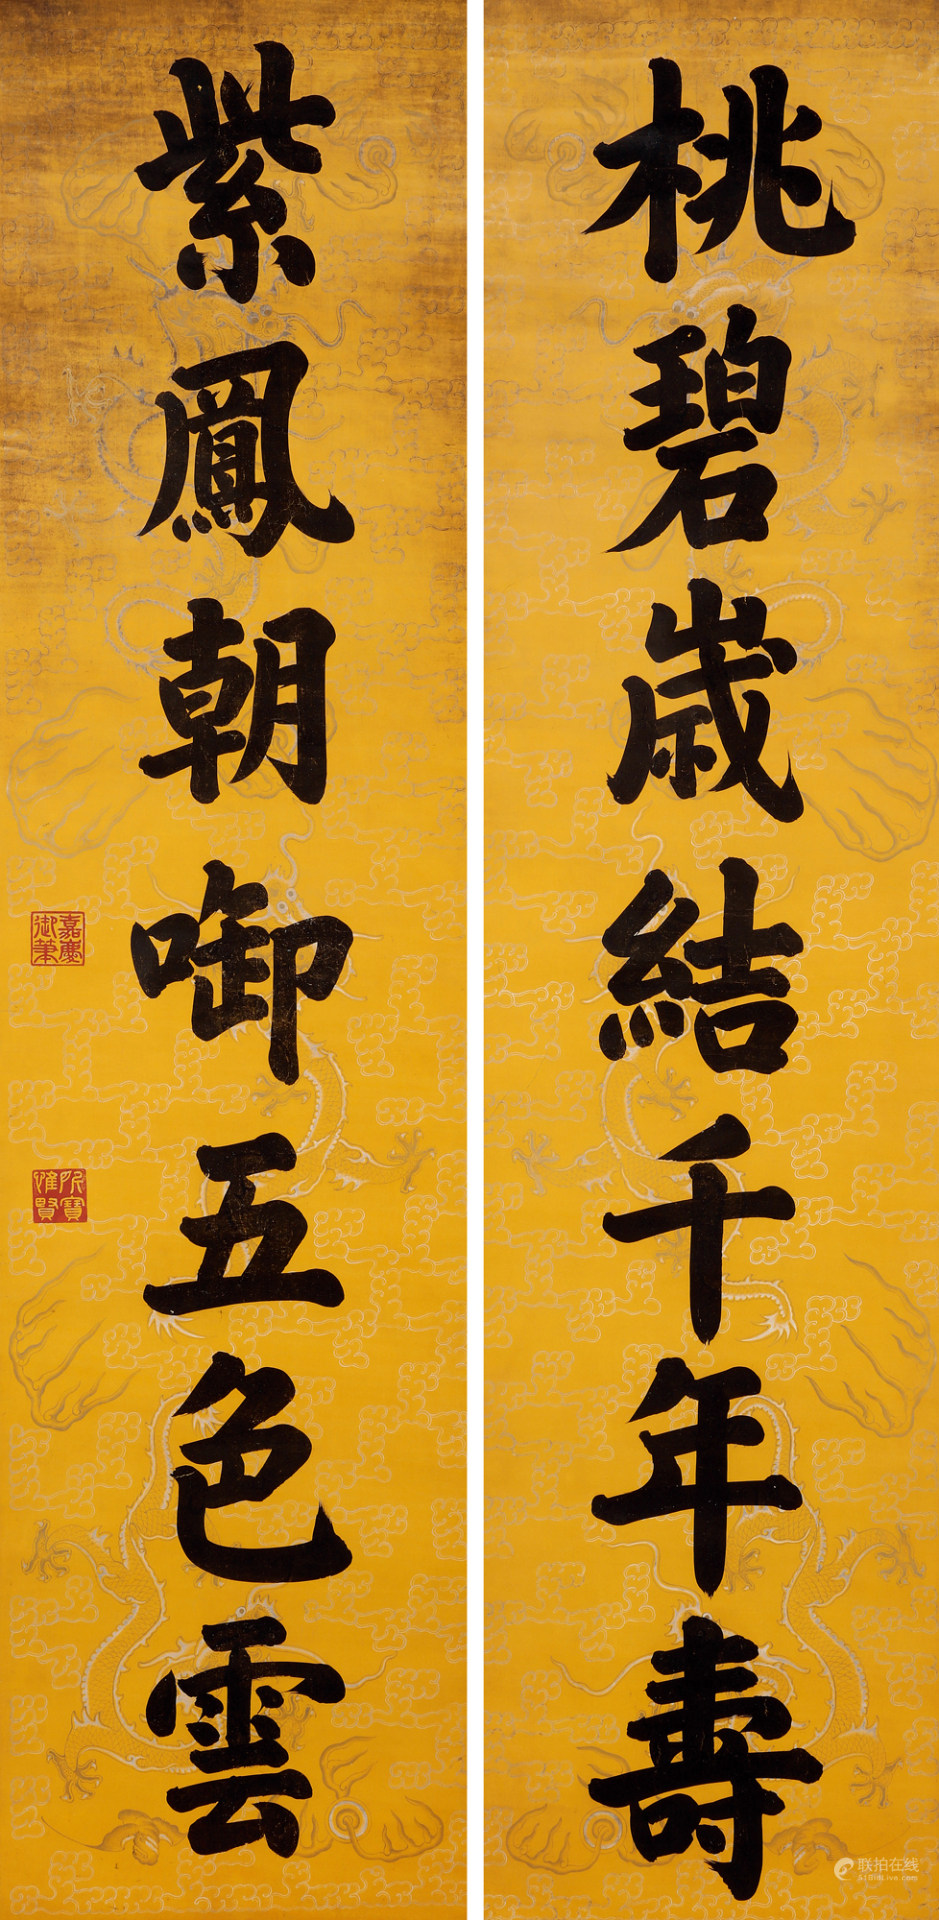 桃碧歲結千年壽
紫鳳朝啣五色雲
嘉慶
御筆
所寶
惟賢
联拍在线